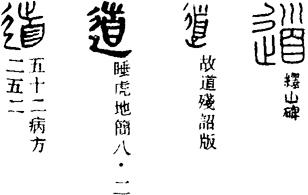 道
繹山碑
道
故道殘詔版
道
睡虎地簡八・二
道
五十二病方
二五二